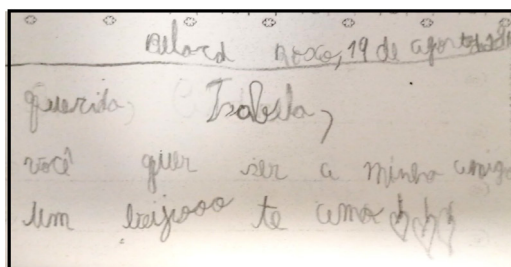 Belord roxo, 19 de agosto
querida, Isabela,
você quer ser a minha amiga
um beijooo te amo